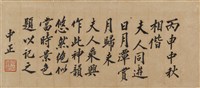 丙申中秋
相偕
夫人同遊
日月潭賞
月歸來
夫人乘興
作此神韻
悠然絕似
當時景色
題以記之
中正